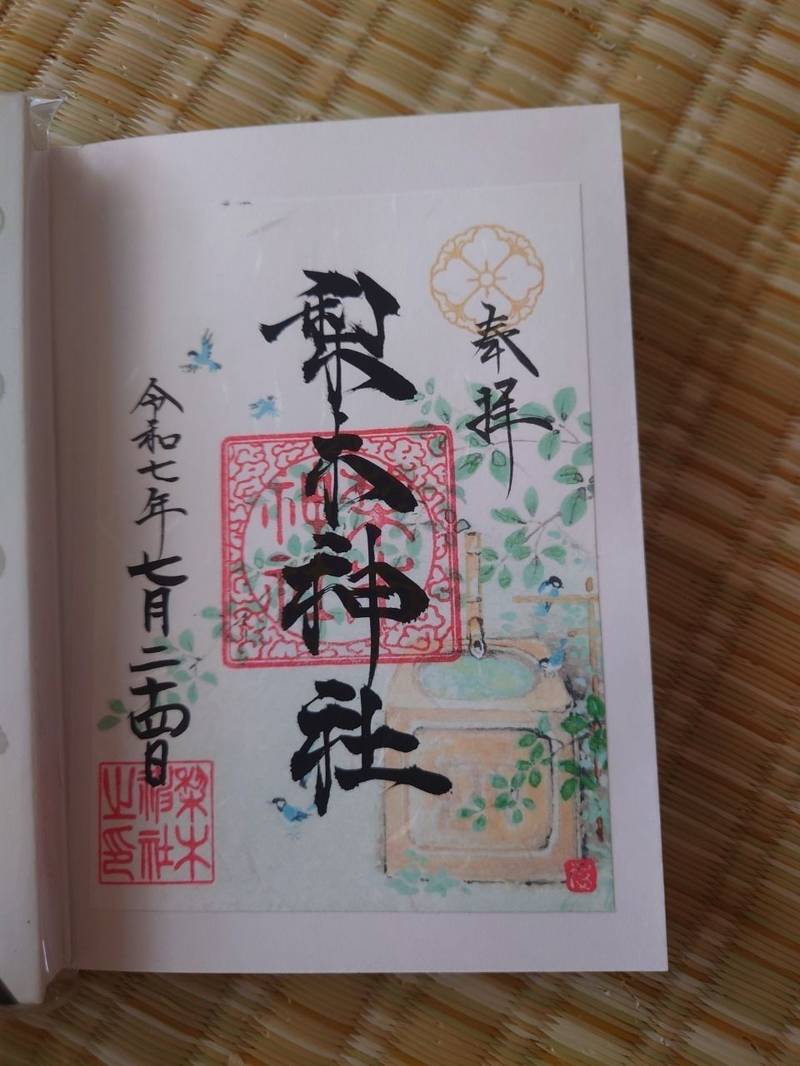 奉拝
梨木神社
令和七年七月二十四日
梨木
神社
梨木
神社
之印